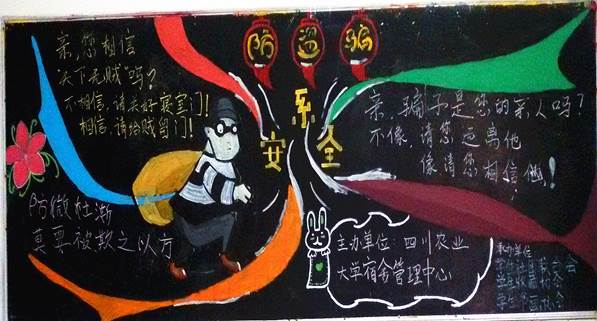 防盗骗
系
安全
亲,您相信
天下无贼吗?
不相信,请关好寝室门!
相信,请给贼留门!
亲,骗子是您的亲人吗?
不像,请您远离他
像请您相信他!
防微杜渐
莫要被欺之以方
主办单位:四川农业
大学宿舍管理中心
承办单位